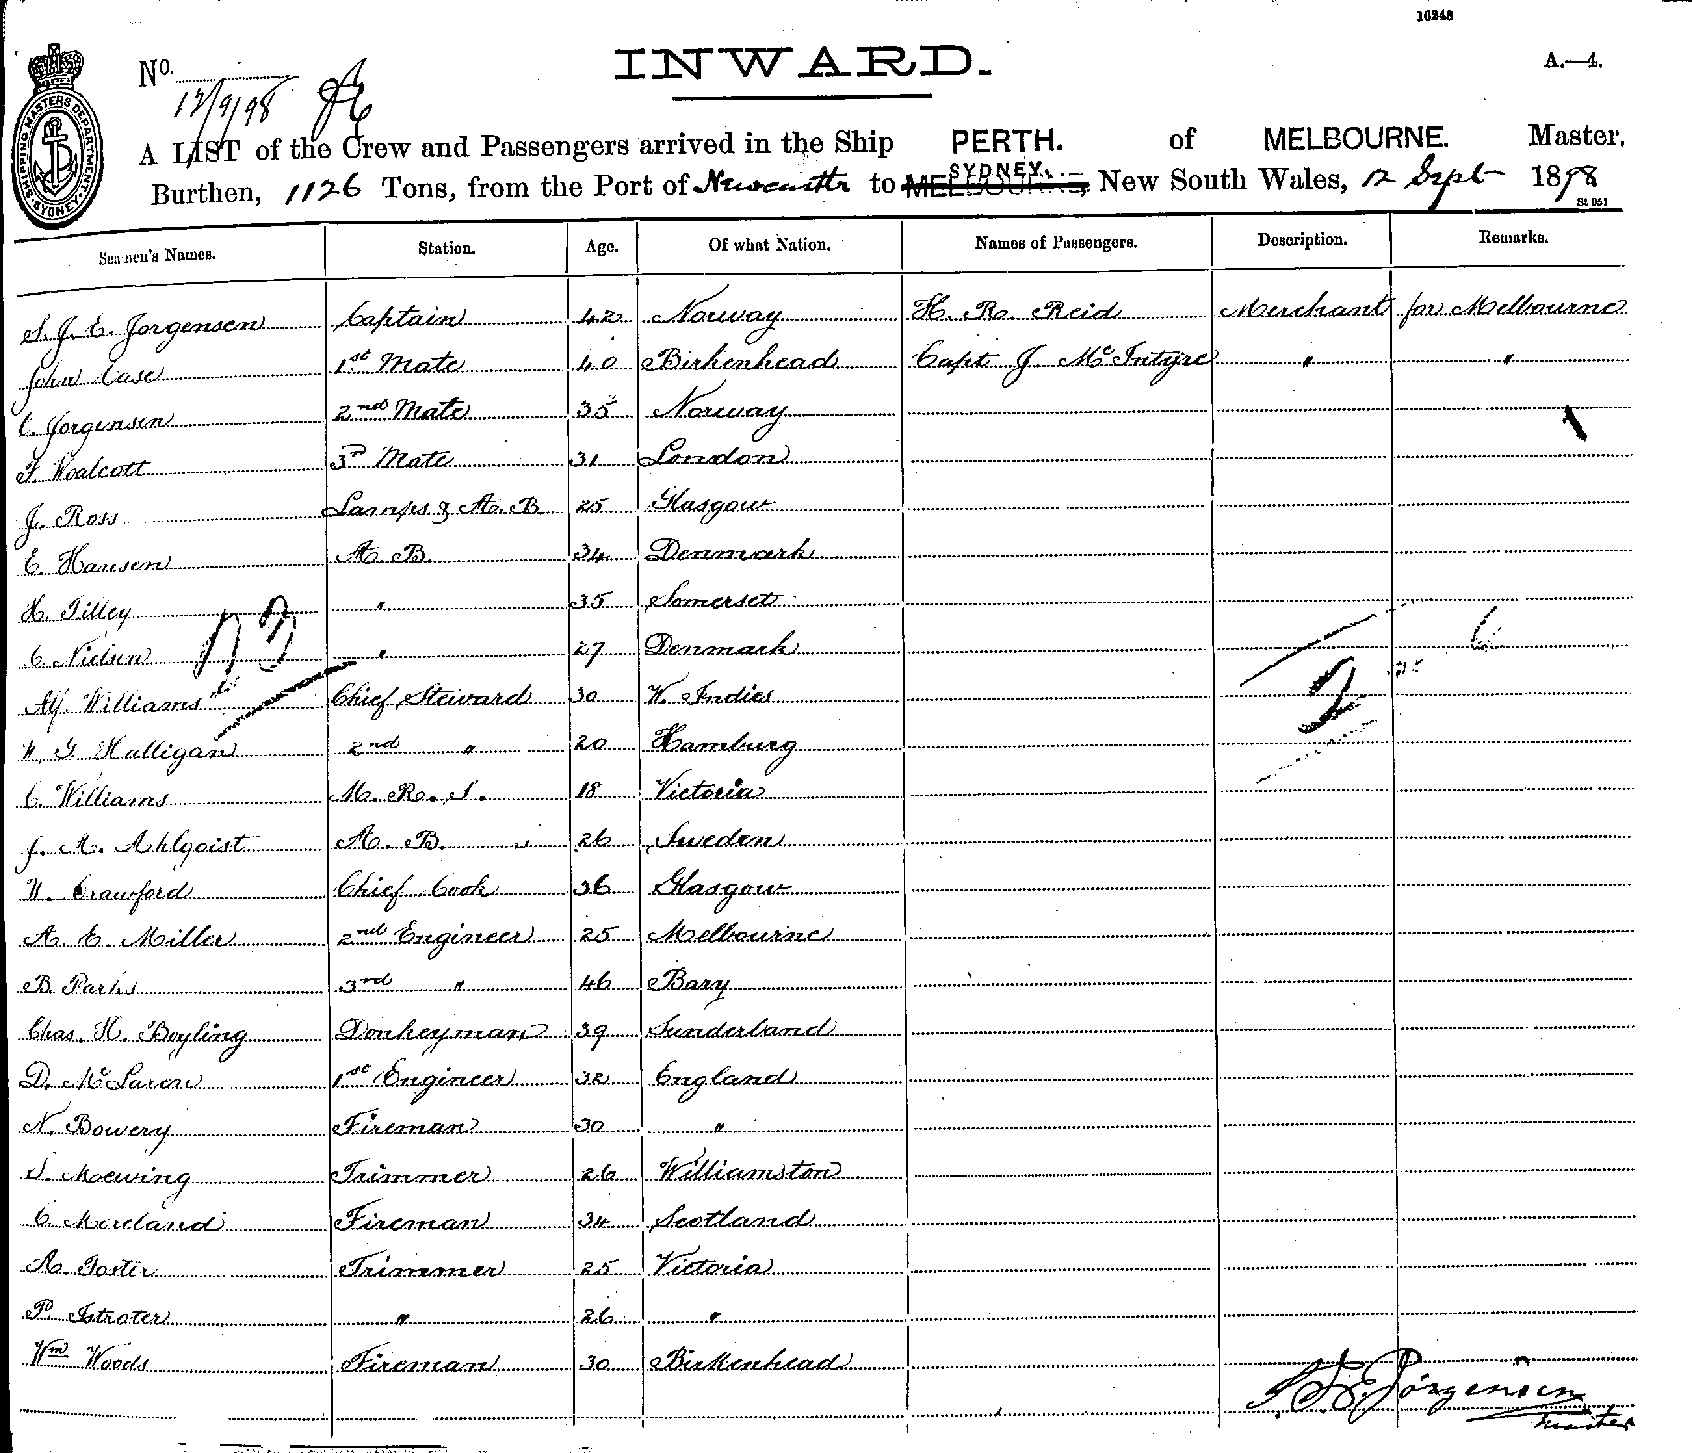 10248
INWARD.
A.—4.
No.
12/9/98
SHIPPING MASTERS DEPARTMENT SYDNEY
A LIST of the Crew and Passengers arrived in the Ship PERTH. of MELBOURNE. Master,
Burthen, 1126 Tons, from the Port of Newcastle to MELBOURNE, SYDNEY. New South Wales, 12 Sept 1898
St 951
Seamen's Names. Station. Age. Of what Nation. Names of Passengers. Description. Remarks.
S. J. E. Jorgensen Captain 42 Norway H. R. Reid Merchant for Melbourne
John Case 1st Mate 40 Birkenhead Capt J. McIntyre " "
C. Jorgensen 2nd Mate 35 Norway
F. Woalcott 3rd Mate 31 London
J. Ross Lamps & A. B 25 Glasgow
E. Hansen A. B. 34 Denmark
H. Tilley " 35 Somerset
C. Nielsen " 27 Denmark
23
6
Alf Williams Chief Steward 30 W. Indies
2
W. G. Halligan 2nd " 20 Hamburg
C. Williams M. R. S. 18 Victoria
J. A. Ahlqoist A. B. 26 Sweden
W. Crawford Chief Cook 36 Glasgow
A. E. Miller 2nd Engineer 25 Melbourne
B Parks 3rd " 46 Bary
Chas. H. Boyling Donkeyman 39 Sunderland
D. McLaron 1st Engineer 32 England
N. Bowery Fireman 30 "
S. Moewing Trimmer 26 Williamston
C. Moreland Fireman 34 Scotland
A. Foster Trimmer 25 Victoria
P. Istroter " 26 "
Wm Woods Fireman 30 Birkenhead
S. J. E. Jörgensen
Master